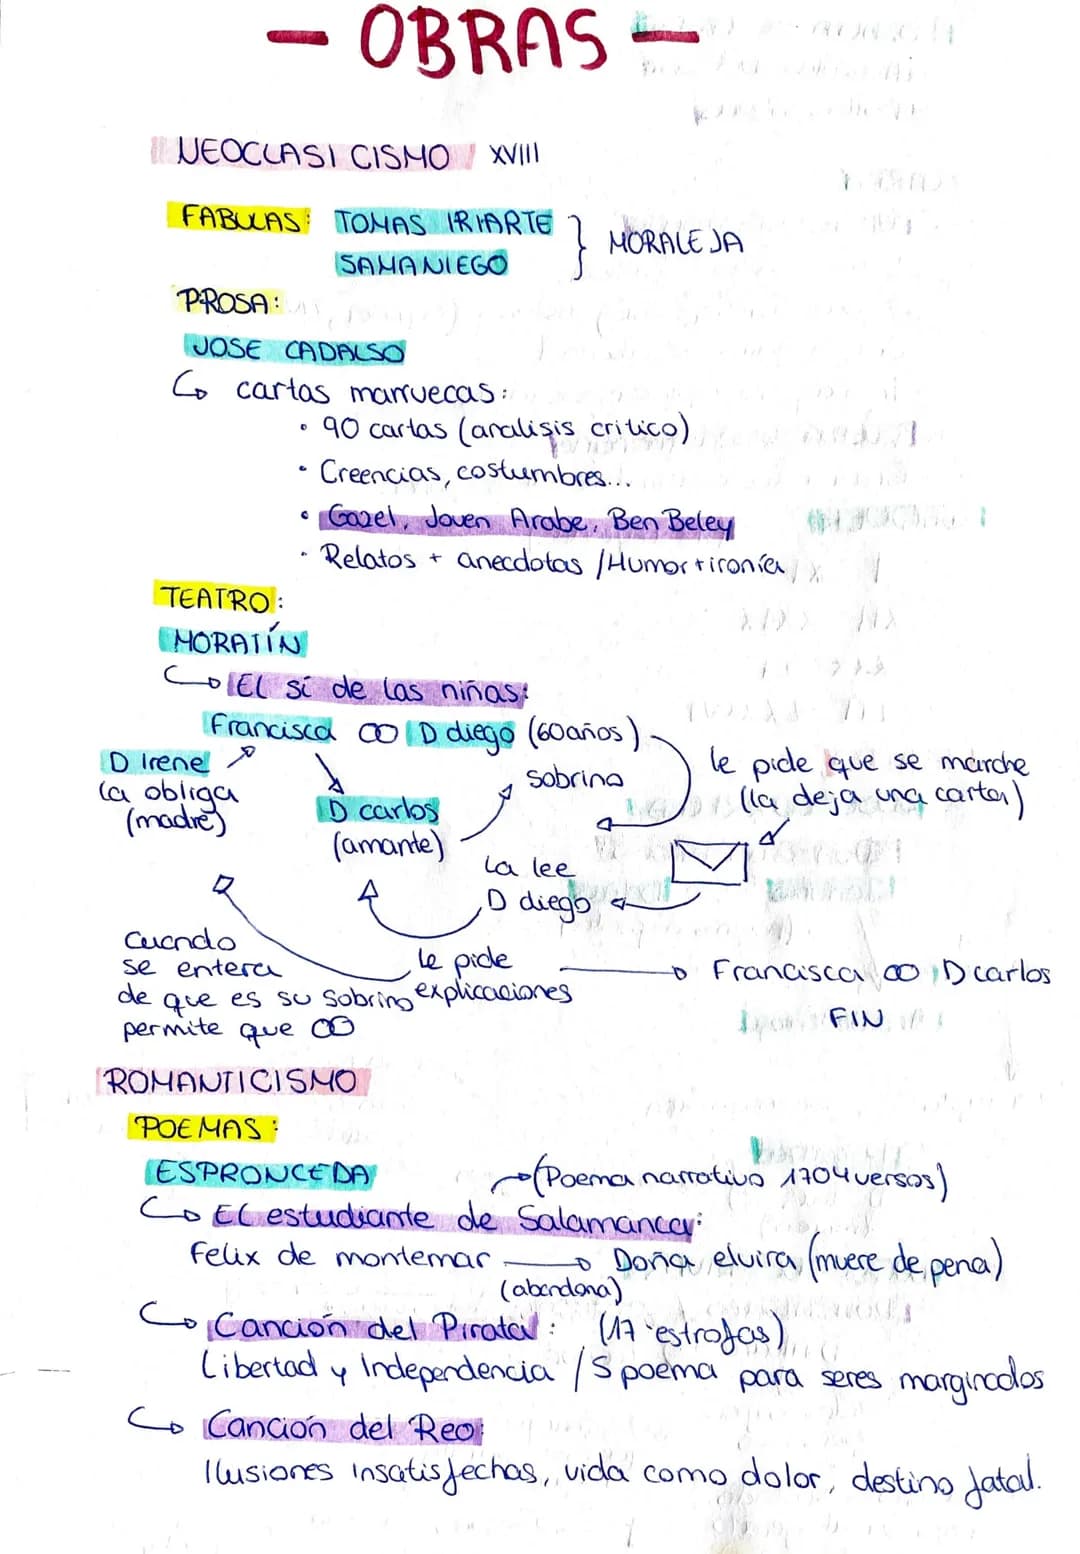 - OBRAS -
NEOCLASICISMO XVIII
FABULAS: TOMAS IRIARTE
SAMANIEGO
} MORALEJA
PROSA:
JOSE CADALSO
↳ cartas marruecas:
• 90 cartas (analisis critico)
• Creencias, costumbres...
• Gazel, Joven Arabe, Ben Beley
• Relatos + anecdotas / Humor + ironía
TEATRO:
MORATÍN
↳ El sí de las niñas:
Francisca ∞ D diego (60 años)
D Irene
la obliga
(madre)
D carlos
(amante)
sobrino
le pide que se marche
(la deja una carta)
La lee
D diego
le pide
explicaciones
Cuando
se entera
de que es su sobrino
permite que ∞
Francisca ∞ D carlos
FIN
ROMANTICISMO
POEMAS:
ESPRONCEDA
→ (Poema narrativo 1704 versos)
↳ El estudiante de Salamanca:
Felix de montemar → Doña elvira (muere de pena)
(abandona)
↳ Canción del Pirata: (17 estrofas)
Libertad y Independencia / S poema para seres marginados
↳ Canción del Reo:
Ilusiones insatisfechas, vida como dolor, destino fatal.